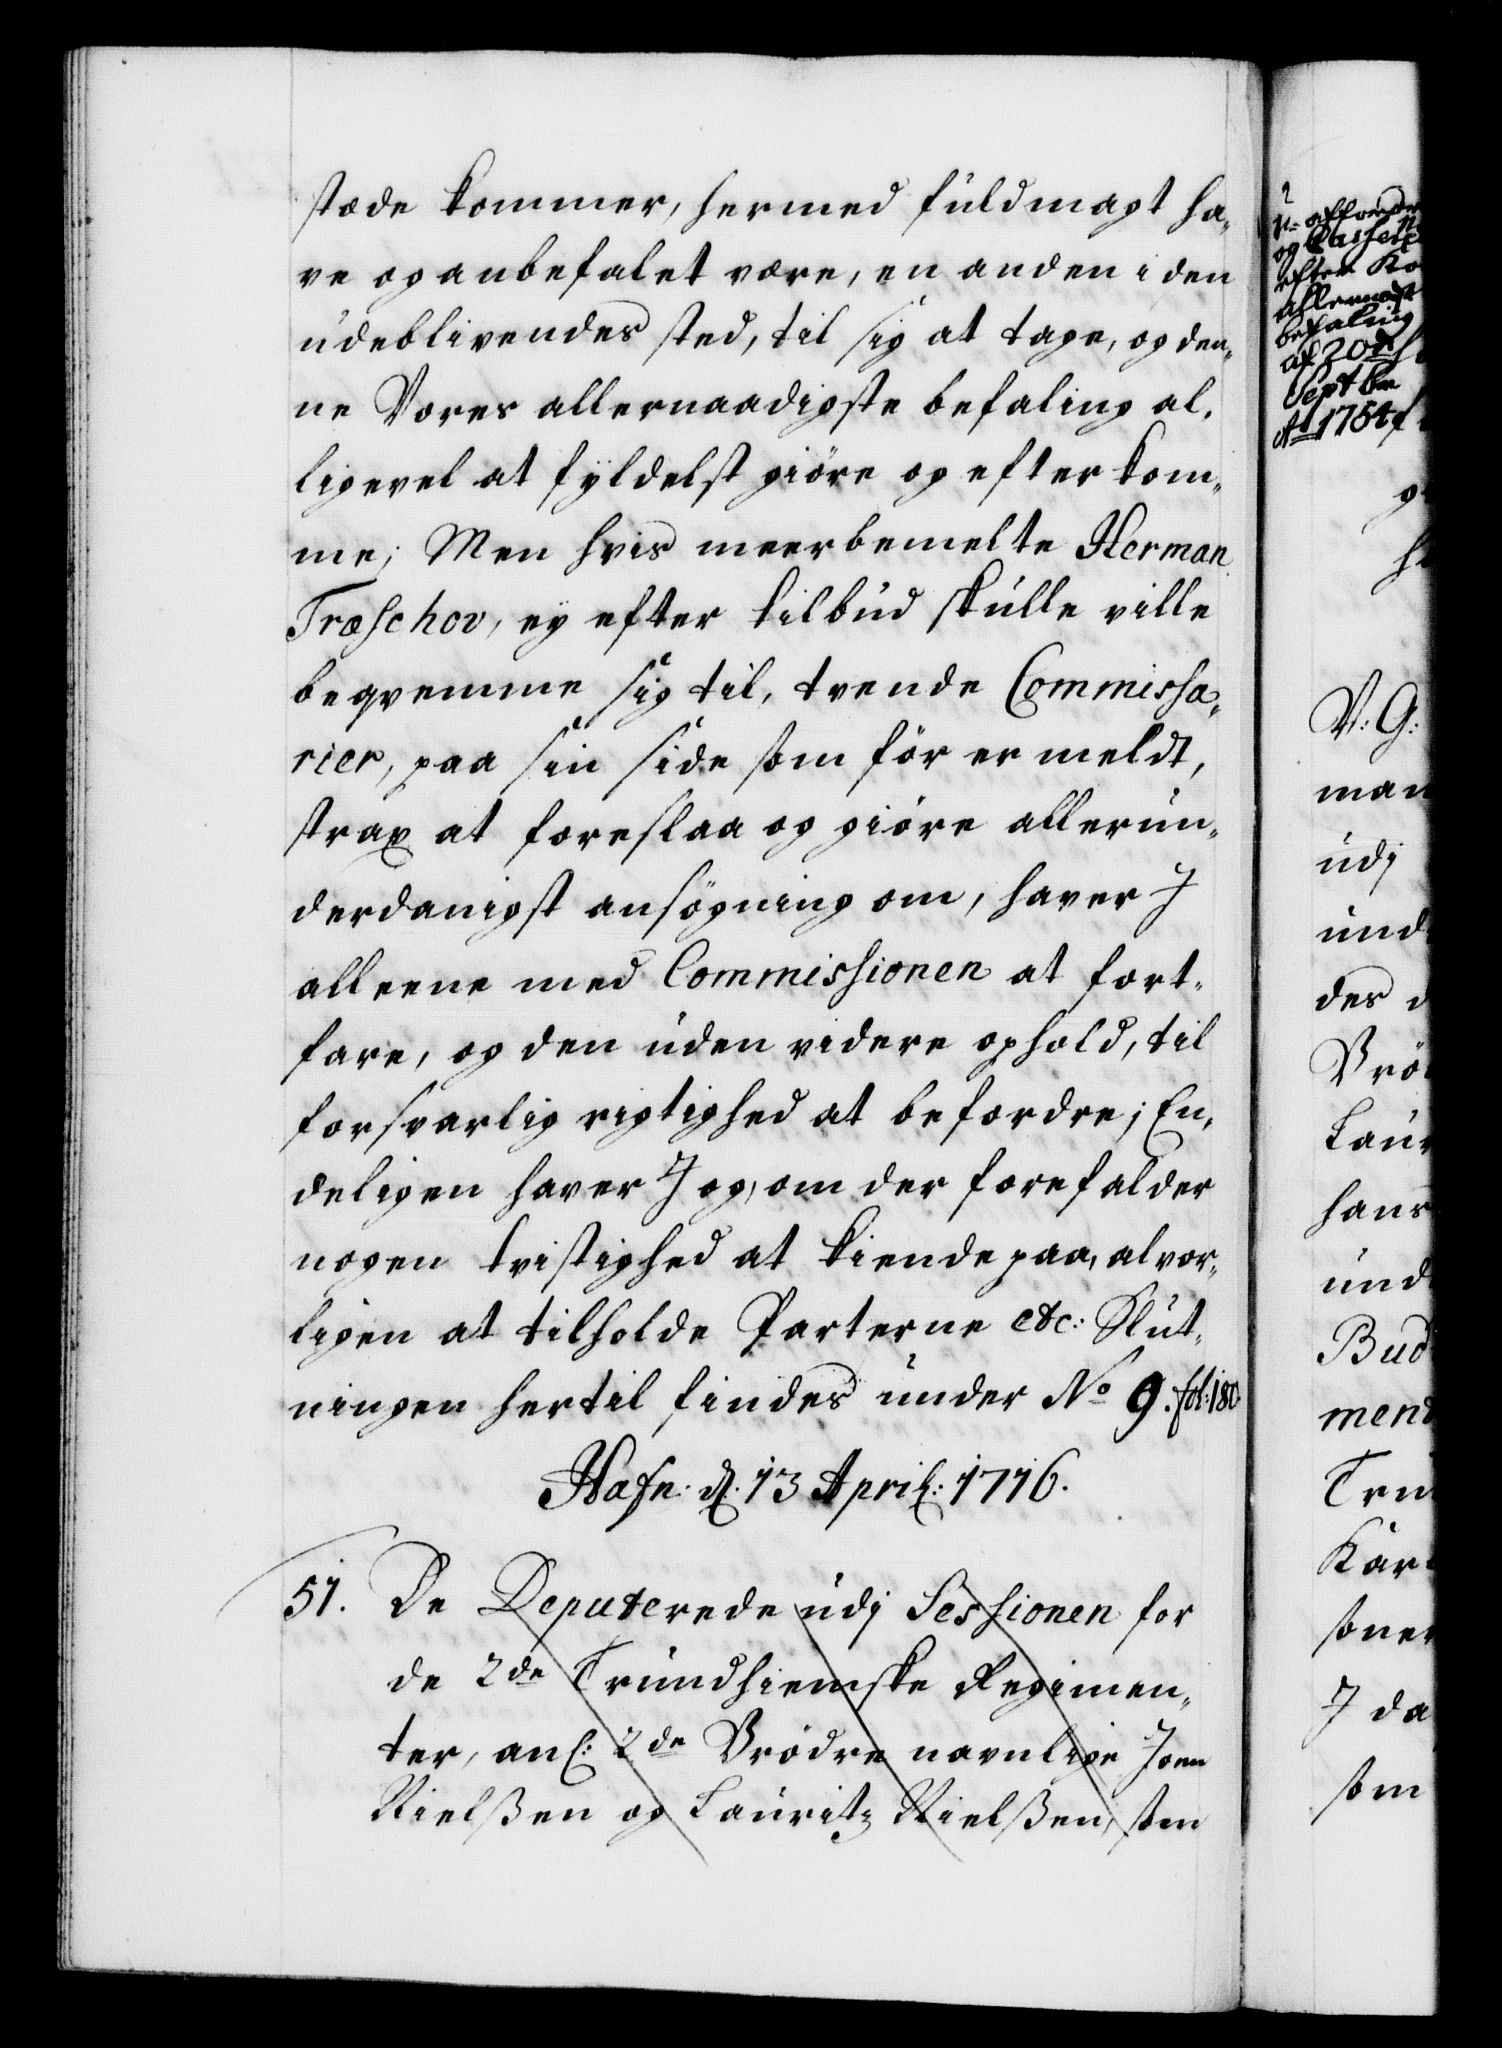 stæde kommer, hermed fuldmagt ha-
ve og anbefalet være, en anden i den
udeblivendes sted, til sig at tage, og den-
ne Vores allernaadigste befaling al-
ligevel at fyldelst giöre og efterkom-
me; Men hvis meerbemelte Herman
Træschov, ey efter tilbud skulle ville
beqvemme sig til, tvende Commissa-
rier, paa sin side som för er meldt,
strax at foreslaa og giöre allerun-
derdanigst ansögning om, haver J
alleene med Commissionen at fort-
fare, og den uden videre ophold, til
forsvarlig rigtighed at befordre; En-
deligen haver J og, om der forefalder
nogen tvistighed at kiende paa, alvor-
ligen at tilholde Parterne etc: Slut-
ningen hertil findes under No 9. fol: 180
Hafn: d. 13 April: 1716.
51. De Deputerede udj Sessionen for
de 2de Trundhiemske Regimen-
ter, anl: 2de Brödre navnlige Joen
Nielßen og Lauritz Nielßen, som
og Casseret
efter Ko
allernaadst
befaling
af 20de
Septbr
Ao 1754
V: G:
man
udj
und
des d
Brö
Laur
hans
und
Bud
mend
Tru
Kar
soner
J da
som